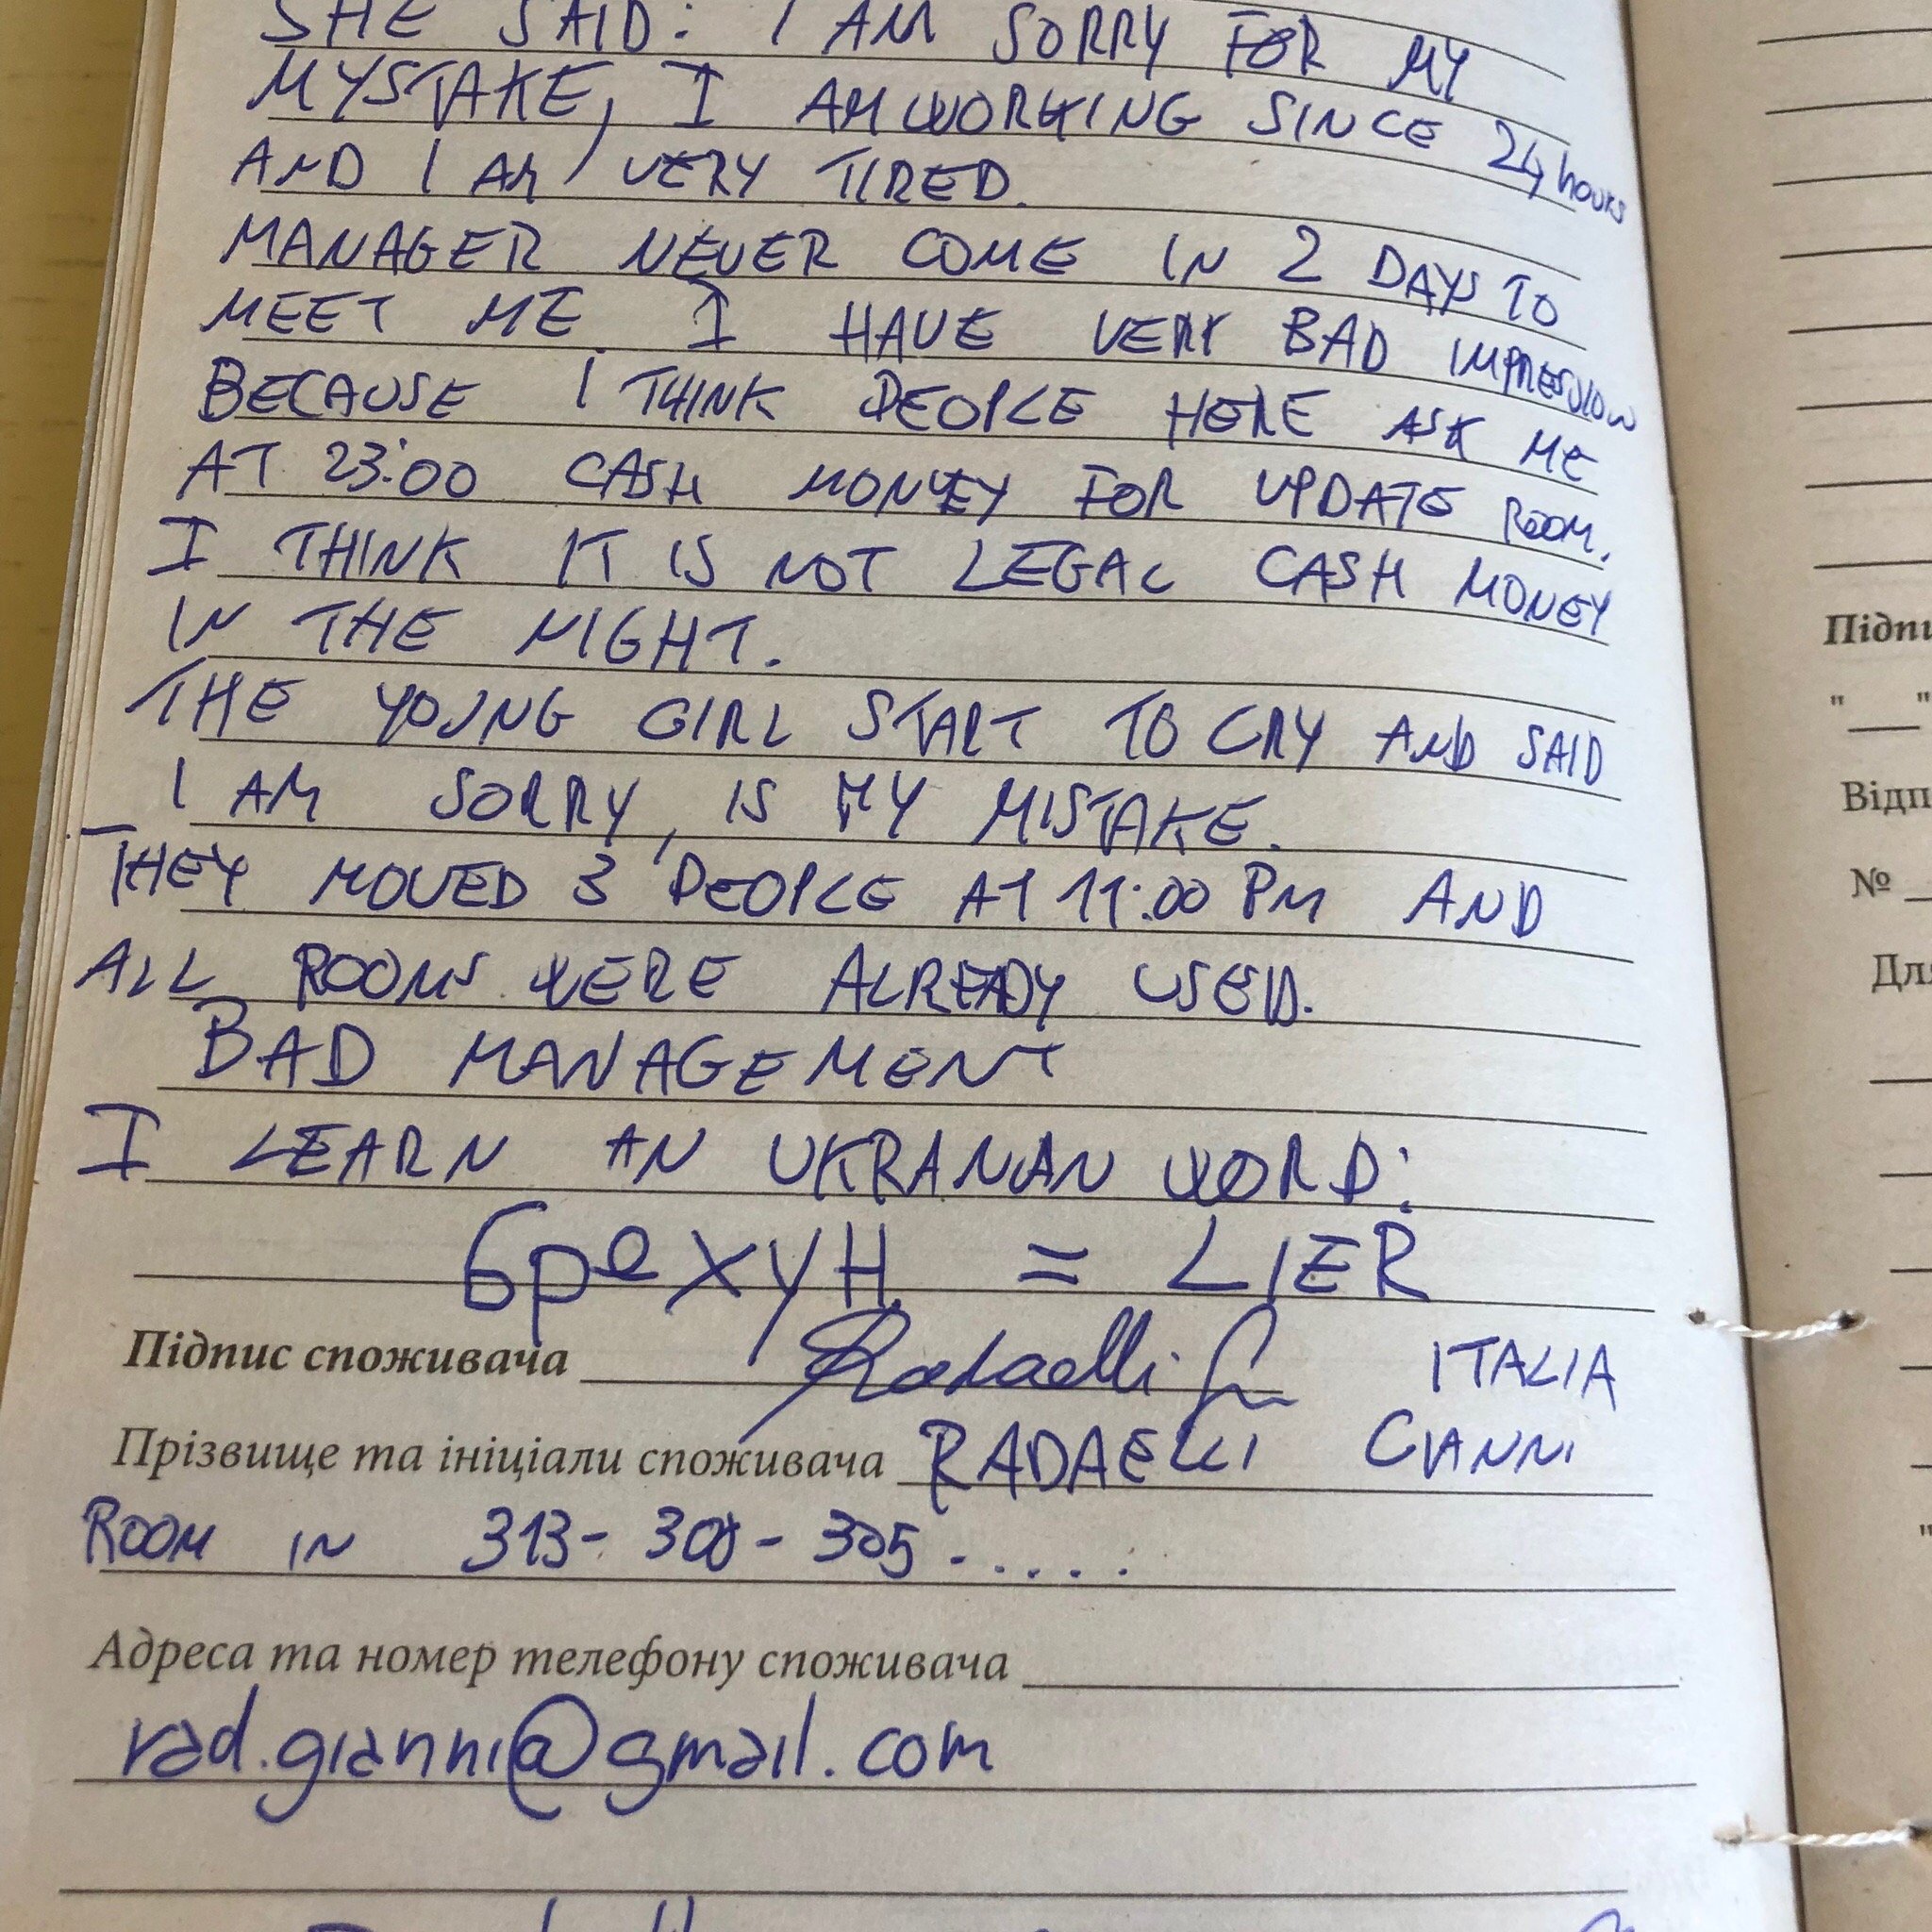 SHE SAID: I AM SORRY FOR MY
MYSTAKE, I AM WORKING SINCE 24 hours
AND I AM VERY TIRED.
MANAGER NEVER COME IN 2 DAYS TO
MEET ME. I HAVE VERY BAD IMPRESSION
BECAUSE I THINK PEOPLE HERE ASK ME
AT 23:00 CASH MONEY FOR UPDATE ROOM.
I THINK IT IS NOT LEGAL CASH MONEY
IN THE NIGHT.
THE YOUNG GIRL START TO CRY AND SAID
I AM SORRY, IS MY MISTAKE.
THEY MOVED 3 PEOPLE AT 11:00 PM AND
ALL ROOMS WERE ALREADY USED.
BAD MANAGEMENT
I LEARN AN UKRANAN WORD:
брехун = LIER
Підпис споживача Radaelli G ITALIA
Прізвище та ініціали споживача RADAELLI GIANNI
ROOM IN 313 - 308 - 305 - .....
Адреса та номер телефону споживача
rad.gianni@gmail.com
Підпи
"___"
Відп
№
Для
"